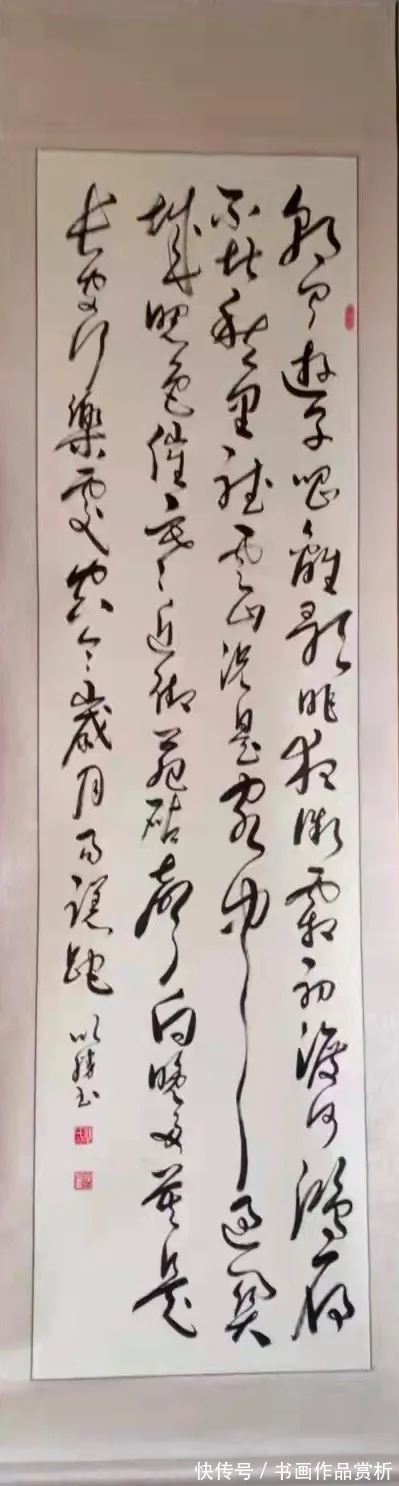 朝聞遊子唱離歌昨夜微霜初渡河鴻雁
不堪愁里聽雲山况是客中過關
城曙色催寒近御苑砧聲向晚多莫是
長安行樂處空令歲月易蹉跎
书
快传号/书画作品赏析